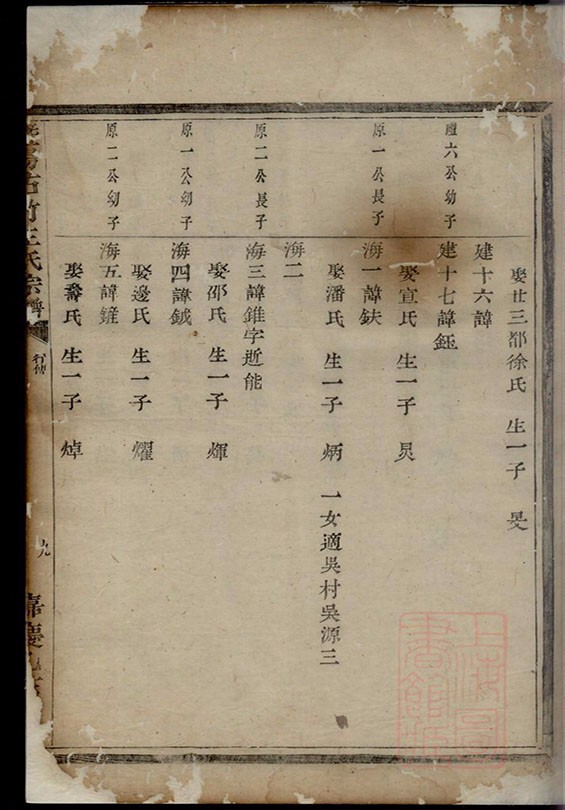 娶廿三都徐氏 生一子 旻
建十六諱
禮六公幼子 建十七諱鈺
娶宣氏 生一子 炅
原一公長子 海一諱鈇
娶潘氏 生一子 炳 一女適吳村吳源三
海二
原二公長子 海三諱錐字逝能
娶邵氏 生一子 煇
原一公幼子 海四諱鉞
娶邊氏 生一子 燿
原二公幼子 海五諱
娶壽氏 生一子 焯
古竹王氏宗譜 行傳 九 嘉慶
上海圖書館藏